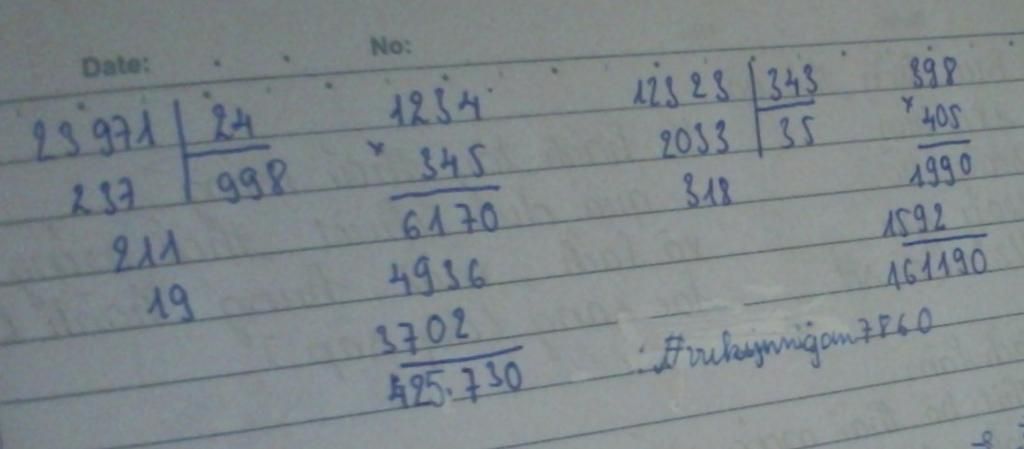 Date: No:
23971 24 1234 12323 343 398
237 998 × 345 2033 35 × 405
211 6170 318 1990
19 4936 1592
3702 161190
425.730